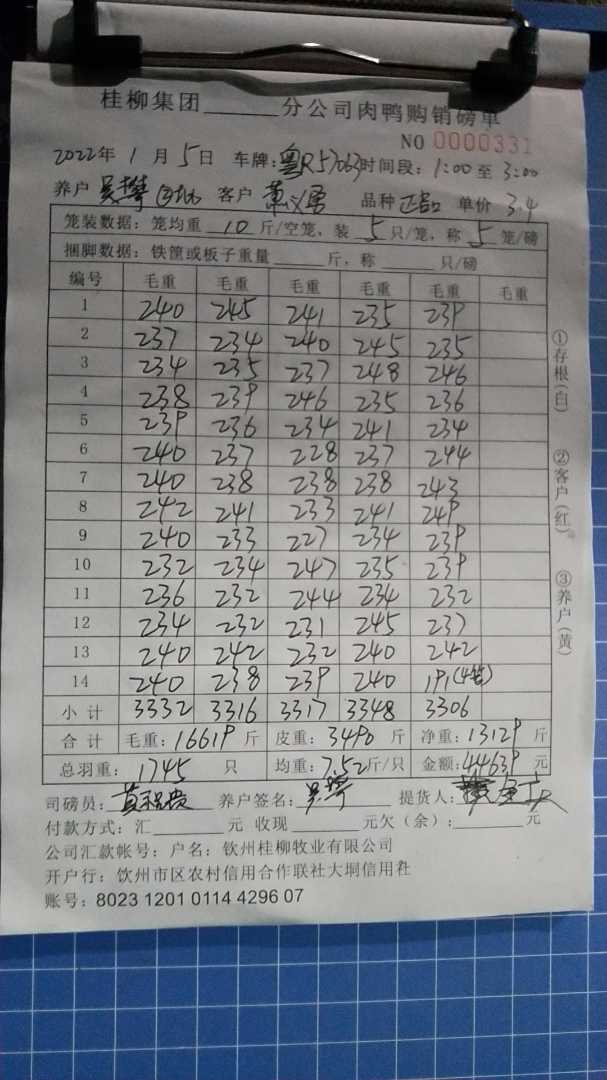 桂柳集团______分公司肉鸭购销磅单
NO 0000331
2022年 1 月 5 日 车牌:粤R57063时间段: 1:00 至 3:00
养户 客户 品种 正品 单价 3.4
笼装数据: 笼均重 10 斤/空笼, 装 5 只/笼, 称 5 笼/磅
捆脚数据: 铁筐或板子重量______斤, 称______只/磅
编号 毛重 毛重 毛重 毛重 毛重 毛重
1 240 245 241 235 239
2 237 234 240 245 235
3 234 235 237 248 246
4 238 239 246 235 236
5 239 236 234 241 234
6 240 237 228 237 244
7 240 238 238 238 243
8 242 241 233 241 249
9 240 233 227 234 239
10 232 234 247 235 239
11 236 232 244 234 232
12 234 232 231 245 237
13 240 242 232 240 242
14 240 238 239 240 191(4笼)
小计 3332 3316 3317 3348 3306
合计 毛重: 16619 斤 皮重: 3490 斤 净重: 13129 斤
总羽重: 1745 只 均重: 7.52 斤/只 金额: 44639 元
司磅员: 养户签名: 提货人:
付款方式: 汇______元 收现______元欠(余):______元
公司汇款帐号: 户名: 钦州桂柳牧业有限公司
开户行: 钦州市区农村信用合作联社大垌信用社
账号: 8023 1201 0114 4296 07
①存根(白)
②客户(红)
③养户(黄)